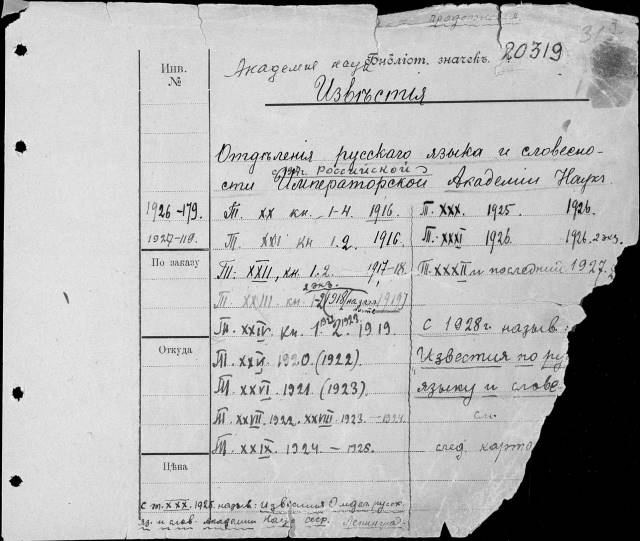 продолжения
Инв.
№
Академия наук
Библіот. значекъ.
20319
Извѣстія
Отдѣленія русскаго языка и словесно-
с 1917г. Российской
сти Императорской Академіи Наукъ
1926-179.
1927-119.
По заказу
Откуда
Цѣна
Т. XX кн. 1-4. 1916.
Т. XXI кн 1.2. 1916.
Т. XXII, кн. 1.2. 1917-18.
2 экз.
Т. XXIII кн 1-2 1918 1919
Т. XXIV. кн. 1 2. 1923. 1919.
Т. XXV. 1920. (1922).
Т. XXVI. 1921. (1923).
Т. XXVII. 1922. XXVIII. 1923. - 1924.
Т. XXIX. 1924. - 1925.
Т. XXX. 1925. 1926.
Т. XXXI 1926. 1926. 2 экз.
Т. XXXII и последний 1927.
с 1928г. назыв:
Известия по ру
языку и слове
см.
след. карто
с т. XXX. 1925. назыв: Известия Отдел. русск.
яз. и слов. Академии Наук СССР. Ленинград.